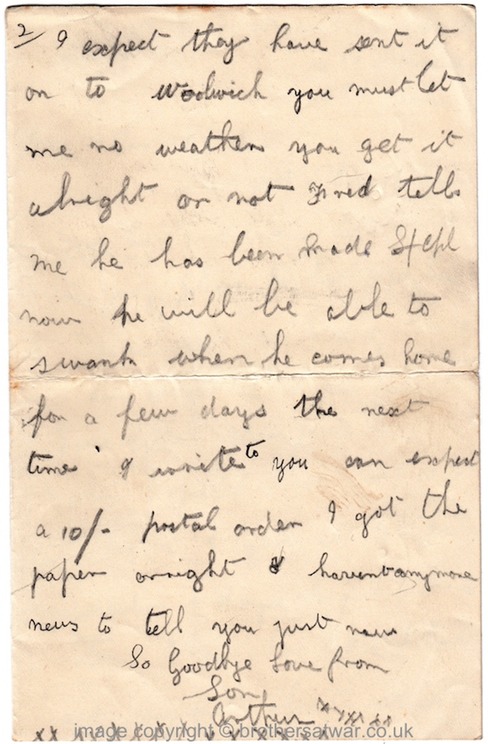 2/ I expect they have sent it
on to Woolwich you must let
me no weather you get it
alright or not Fred tells
me he has been made L/Cpl
now he will be able to
swank when he comes home
for a few days the next
time I write to you can expect
a 10/- postal order I got the
paper orright & havent anymore
news to tell you just now
So Goodbye Love from
Son
Arthur xxxxxx
xx x x x x x x x x x
image copyright @ brothersatwar.co.uk